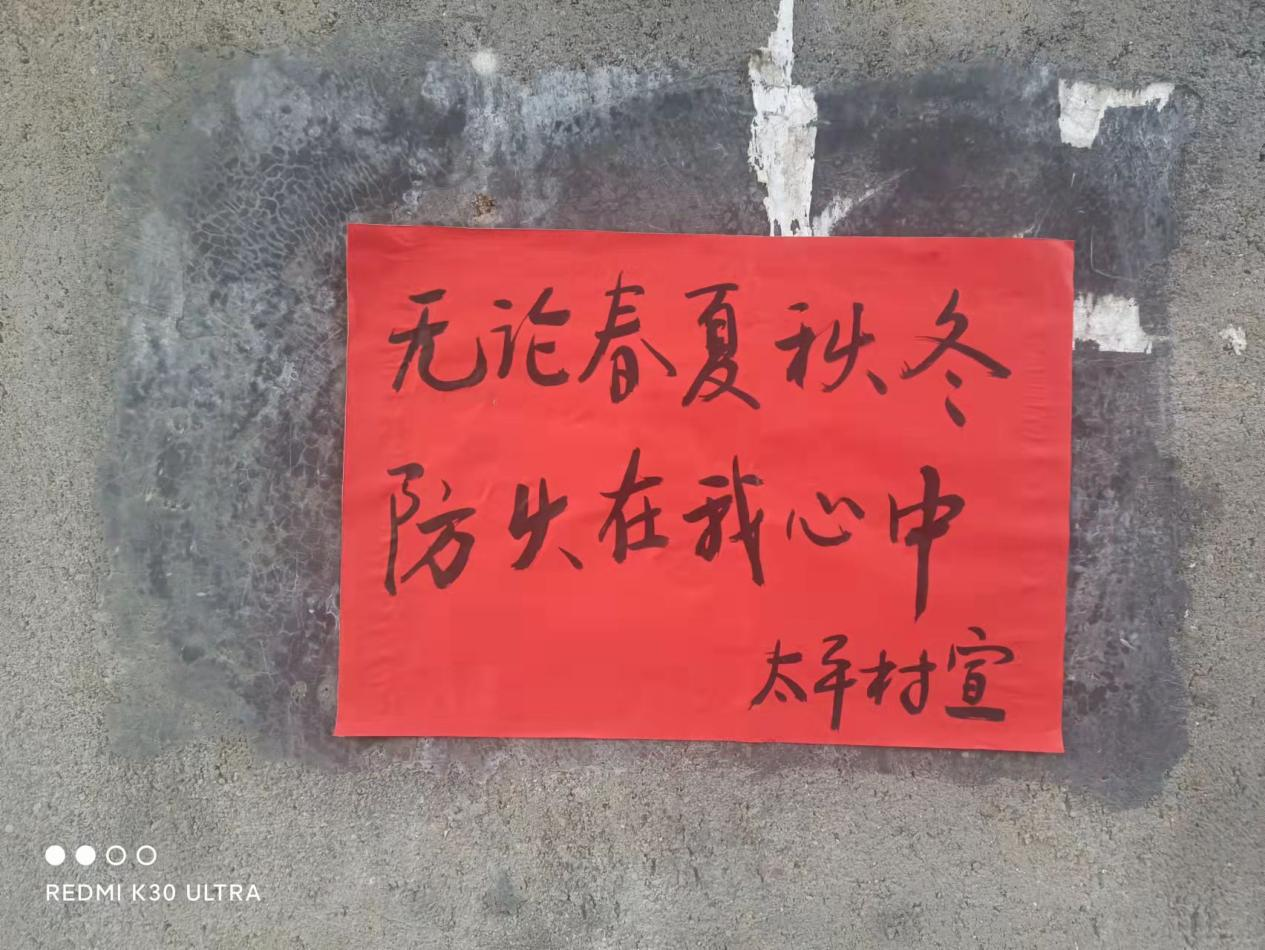 无论春夏秋冬
防火在我心中
太平村宣
REDMI K30 ULTRA